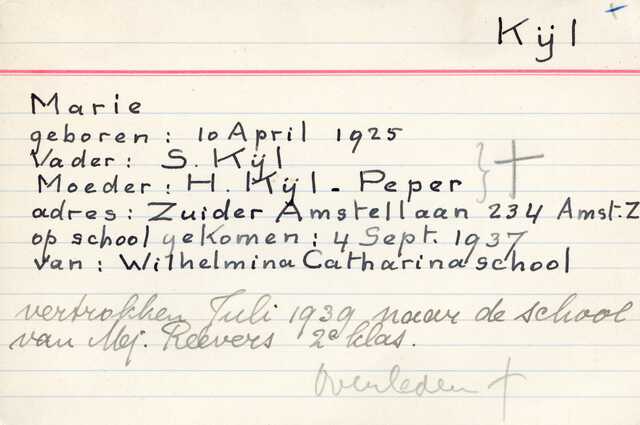 Kijl +
Marie
geboren: 10 April 1925
Vader: S. Kijl
Moeder: H. Kijl - Peper } †
adres: Zuider Amstellaan 234 Amst. Z
op school gekomen: 4 Sept. 1937
van: Wilhelmina Catharinaschool
vertrokken Juli 1939 naar de school
van Mej. Reevers 2e klas.
Overleden †